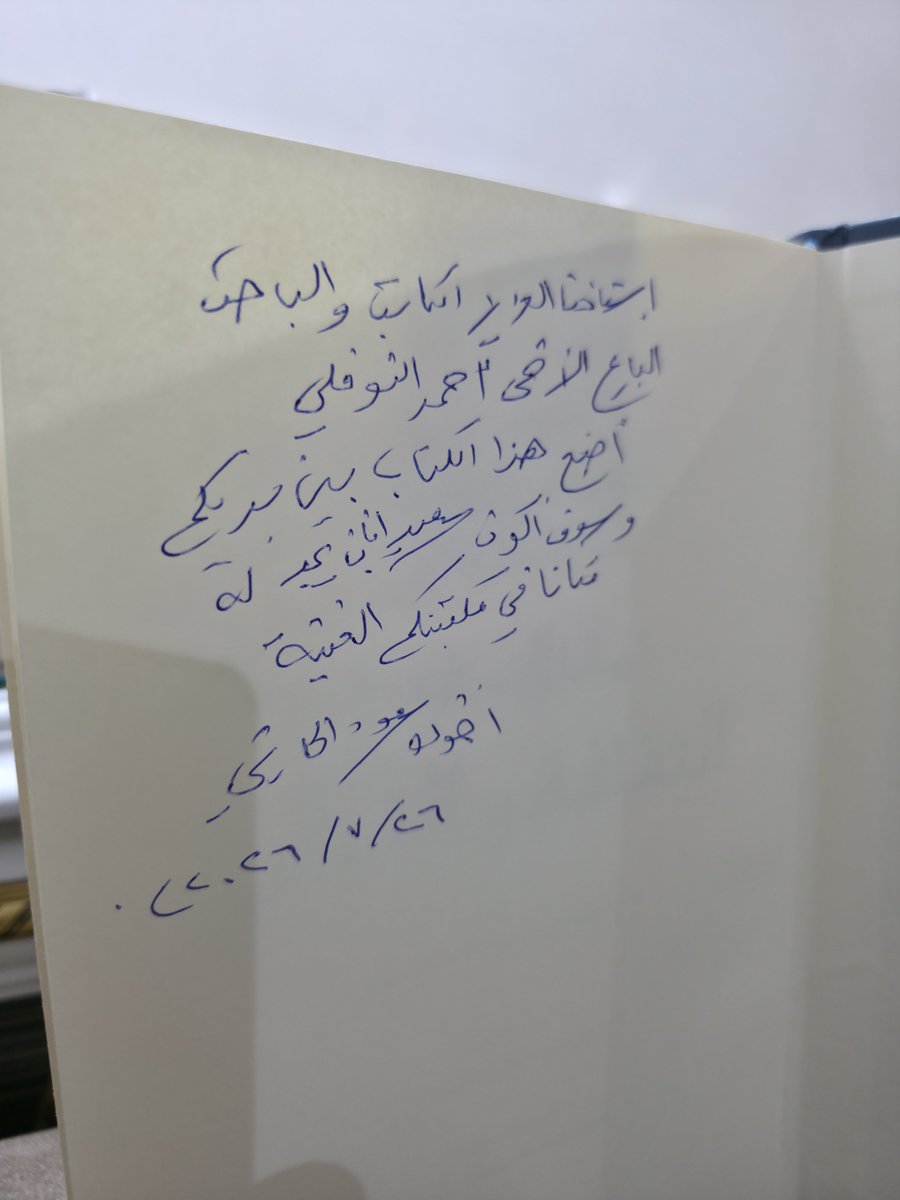 استاذنا العزيز الكاتب والباحث
البارع الأخ أحمد النوفلي
أضع هذا الكتاب بين يديكم
وسوف أكون سعيد ان يجد له
مكانا في مكتبتكم الغنية
اخوك سعود الحارثي
٢٦/٧/٢٠٢٦م.